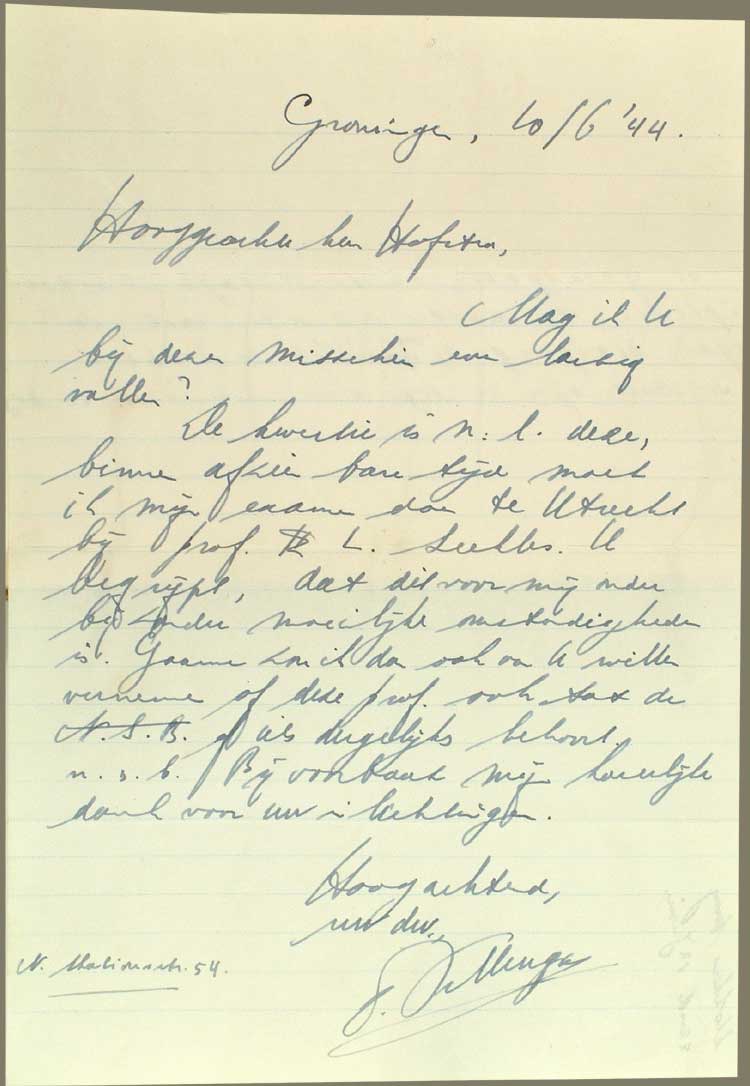 Groningen, 10/6 '44.
Hooggeachte heer Hofstra,
Mag ik U
bij dezen misschien even lastig
vallen?
De kwestie is n:l. deze,
binnen afzien bare tijd moet
ik mijn examen doen te Utrecht
bij prof. L. Seekles. U
begrijpt, dat dit voor mij onder
bijzonder moeilijke omstandigheden
is. Gaarne zou ik dan ook van U willen
vernemen of deze prof. ook tot de
N.S.B. of iets dergelijks behoort.
n.s.b. Bij voorbaat mijn hartelijke
dank voor uw inlichtingen.
Hoogachtend,
uw dw.,
N. Stationsstr. 54.